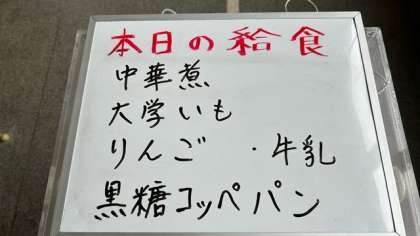 本日の給食
中華煮
大学いも
りんご ・牛乳
黒糖コッペパン